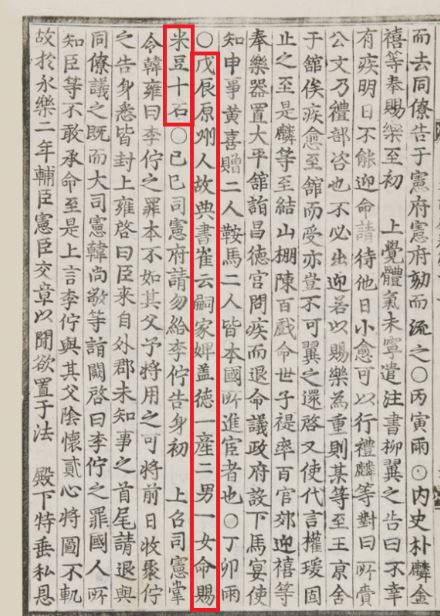 而去同僚告于憲府憲府劾而流之○丙寅雨○內史朴麟金
禧等奉賜樂至初　上覺體氣未寧遣注書柳翼之告曰不幸
有疾明日不能迎命請待他日小愈可以行禮麟等對曰所賫
公文乃禮部咨也不必出迎若以賜樂為重則某等至王京舍
于館俟疾愈至館而受亦豈不可翼之還啓又使代言權瑗固
止之至是麟等至結山棚陳百戲命世子禔率百官郊迎禧等
奉樂器置大平館詣昌德宮問疾而退命議政府設下馬宴使
知申事黃喜贈二人鞍馬二人皆本國所進宦者也○丁卯雨
○戊辰原州人故典書崔云嗣家婢盖德一產二男一女命賜
米豆十石○己巳司憲府請勿給李佇告身初　上召司憲掌
令韓雍曰李佇之罪本不如其父予將用之可將前日收褫佇
之告身悉皆封上雍啓曰臣來自外郡未知事之首尾請退與
同僚議之既而大司憲韓尚敬等詣闕啓曰李佇之罪國人所
知臣等不敢承命至是上言李佇與其父陰懷貳心將圖不軌
故於永樂二年輔臣憲臣交章以聞欲置于法　殿下特垂私恩